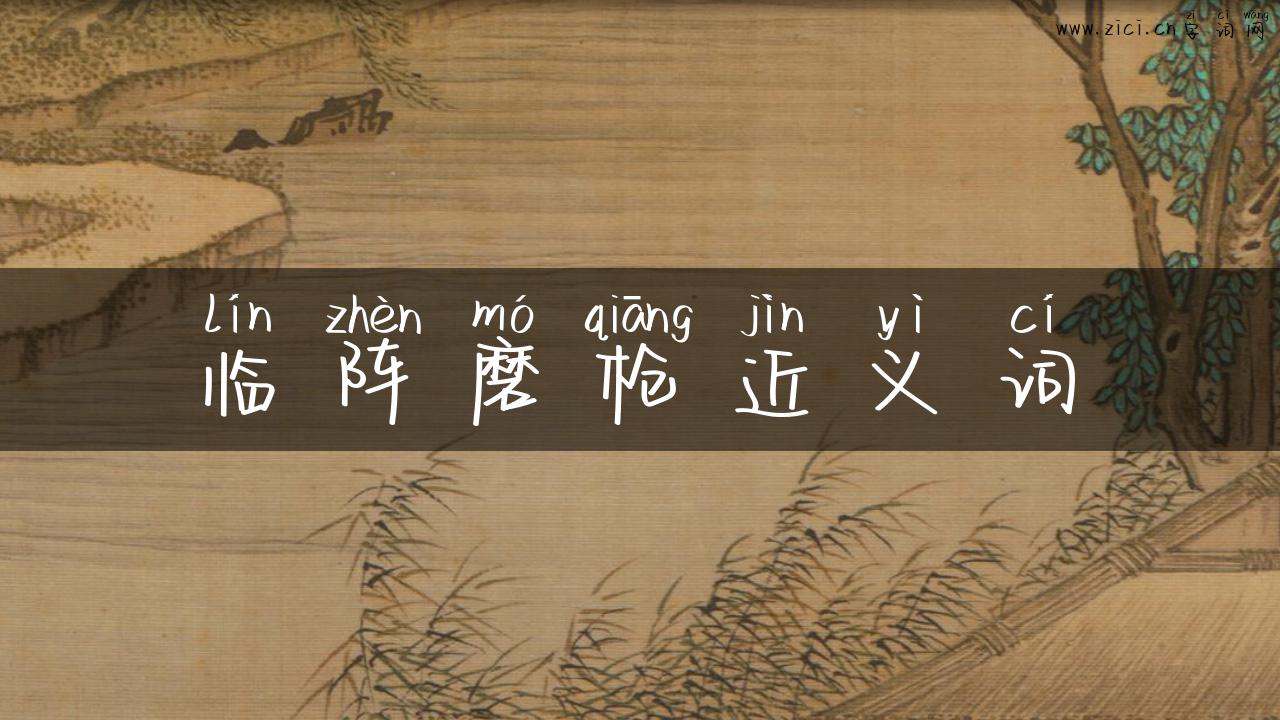 zì cí wǎng
www.zici.cn字词网
lín zhèn mó qiāng jìn yì cí
临阵磨枪近义词